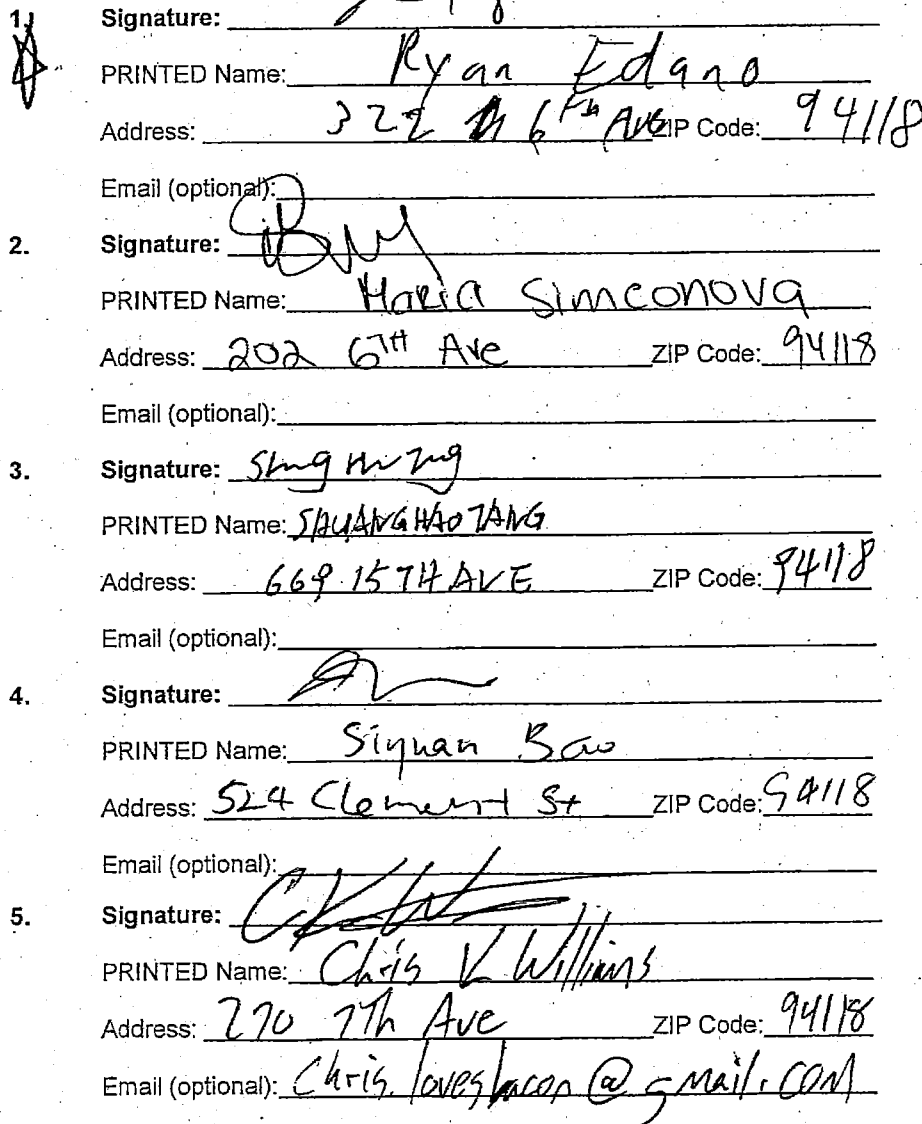 1. Signature:
PRINTED Name: Ryan Edano
Address: 322 6th Ave ZIP Code: 94118
Email (optional):
2. Signature:
PRINTED Name: Maria Simeonova
Address: 202 6TH Ave ZIP Code: 94118
Email (optional):
3. Signature:
PRINTED Name: SHUANGHAO TANG
Address: 669 15TH AVE ZIP Code: 94118
Email (optional):
4. Signature:
PRINTED Name: Siyuan Bao
Address: 524 Clement St ZIP Code: 94118
Email (optional):
5. Signature:
PRINTED Name: Chris V Williams
Address: 270 7Th Ave ZIP Code: 94118
Email (optional): Chris.lovesbacon@gmail.com